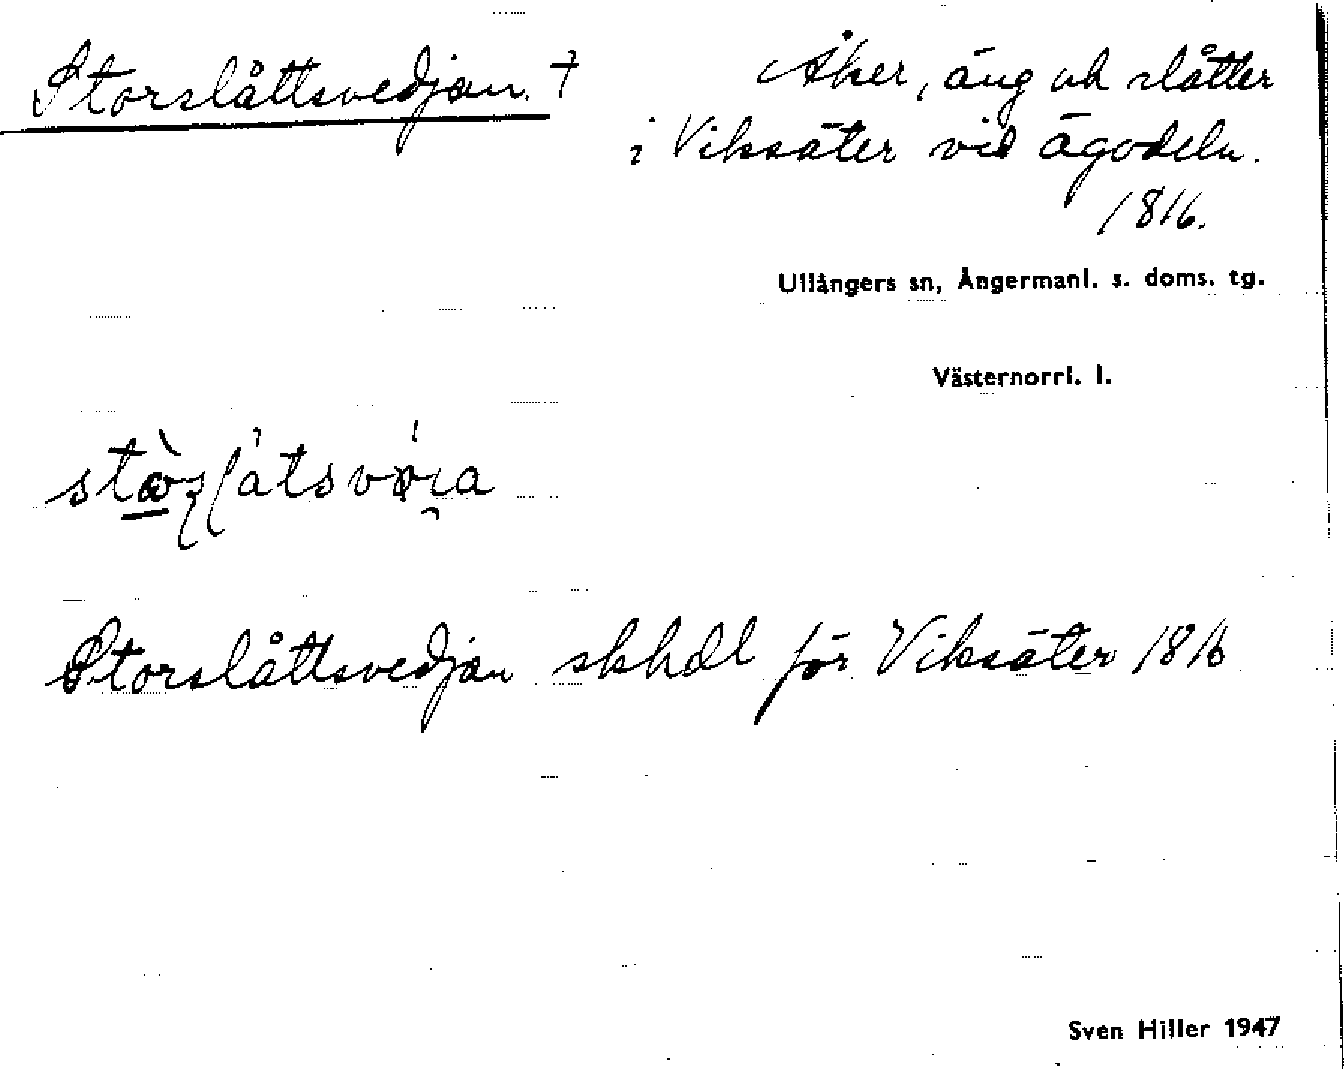 Storslåttsvedjan. †
Åker, äng och slåtter
i Viksäter vid ägodeln.
1816.
Ullångers sn, Ångermanl. s. doms. tg.
Västernorrl. l.
Storslåttsvedjan skhdl för Viksäter 1816
Sven Hiller 1947